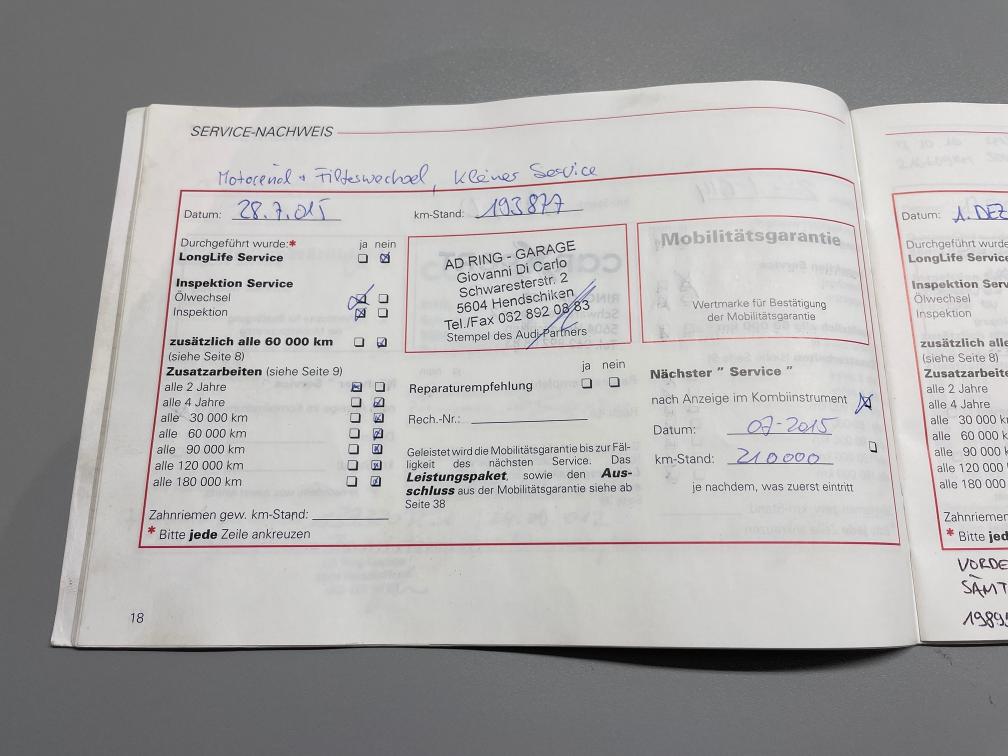 SERVICE-NACHWEIS
Motorenöl + Filterwechsel, Kleiner Service
Datum: 28.7.015 km-Stand: 193877
Durchgeführt wurde:* ja nein
LongLife Service
Inspektion Service
Ölwechsel
Inspektion
zusätzlich alle 60 000 km
(siehe Seite 8)
Zusatzarbeiten (siehe Seite 9)
alle 2 Jahre
alle 4 Jahre
alle 30 000 km
alle 60 000 km
alle 90 000 km
alle 120 000 km
alle 180 000 km
Zahnriemen gew. km-Stand:
* Bitte jede Zeile ankreuzen
AD RING - GARAGE
Giovanni Di Carlo
Schwaresterstr. 2
5604 Hendschiken
Tel./Fax 062 892 08 83
Stempel des Audi-Partners
ja nein
Reparaturempfehlung
Rech.-Nr.:
Geleistet wird die Mobilitätsgarantie bis zur Fäl-
ligkeit des nächsten Service. Das
Leistungspaket, sowie den Aus-
schluss aus der Mobilitätsgarantie siehe ab
Seite 38
Mobilitätsgarantie
Wertmarke für Bestätigung
der Mobilitätsgarantie
Nächster " Service "
nach Anzeige im Kombiinstrument
Datum: 07-2015
km-Stand: 210000
je nachdem, was zuerst eintritt
18
Datum: 1. DEZ
Durchgeführt wurde
LongLife Service
Inspektion Serv
Ölwechsel
Inspektion
zusätzlich alle 6
(siehe Seite 8)
Zusatzarbeiten
alle 2 Jahre
alle 4 Jahre
alle 30 000 km
alle 60 000 k
alle 90 000 k
alle 120 000 k
alle 180 000
Zahnriemen
* Bitte jed
VORDE
SÄMT
1989